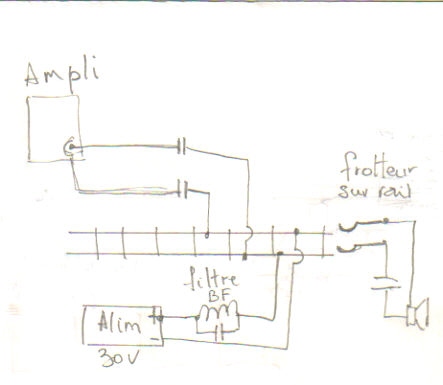 Ampli
frotteur
sur rail
filtre
BF
Alim
+
-
30V